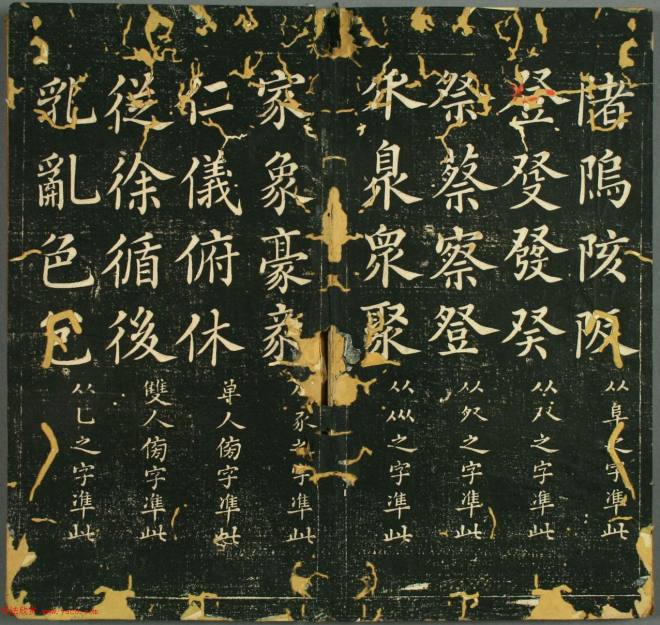 陼隖陔阪从阜之字準此
登癹發癸从癶之字準此
祭蔡察登从癶之字準此
㐺臮眾聚从㐺之字準此
家象豪彖从豕之字準此
仁儀俯休单人傍字準此
從徐循後雙人傍字準此
乳亂色包从乚之字準此
www.yac8.com